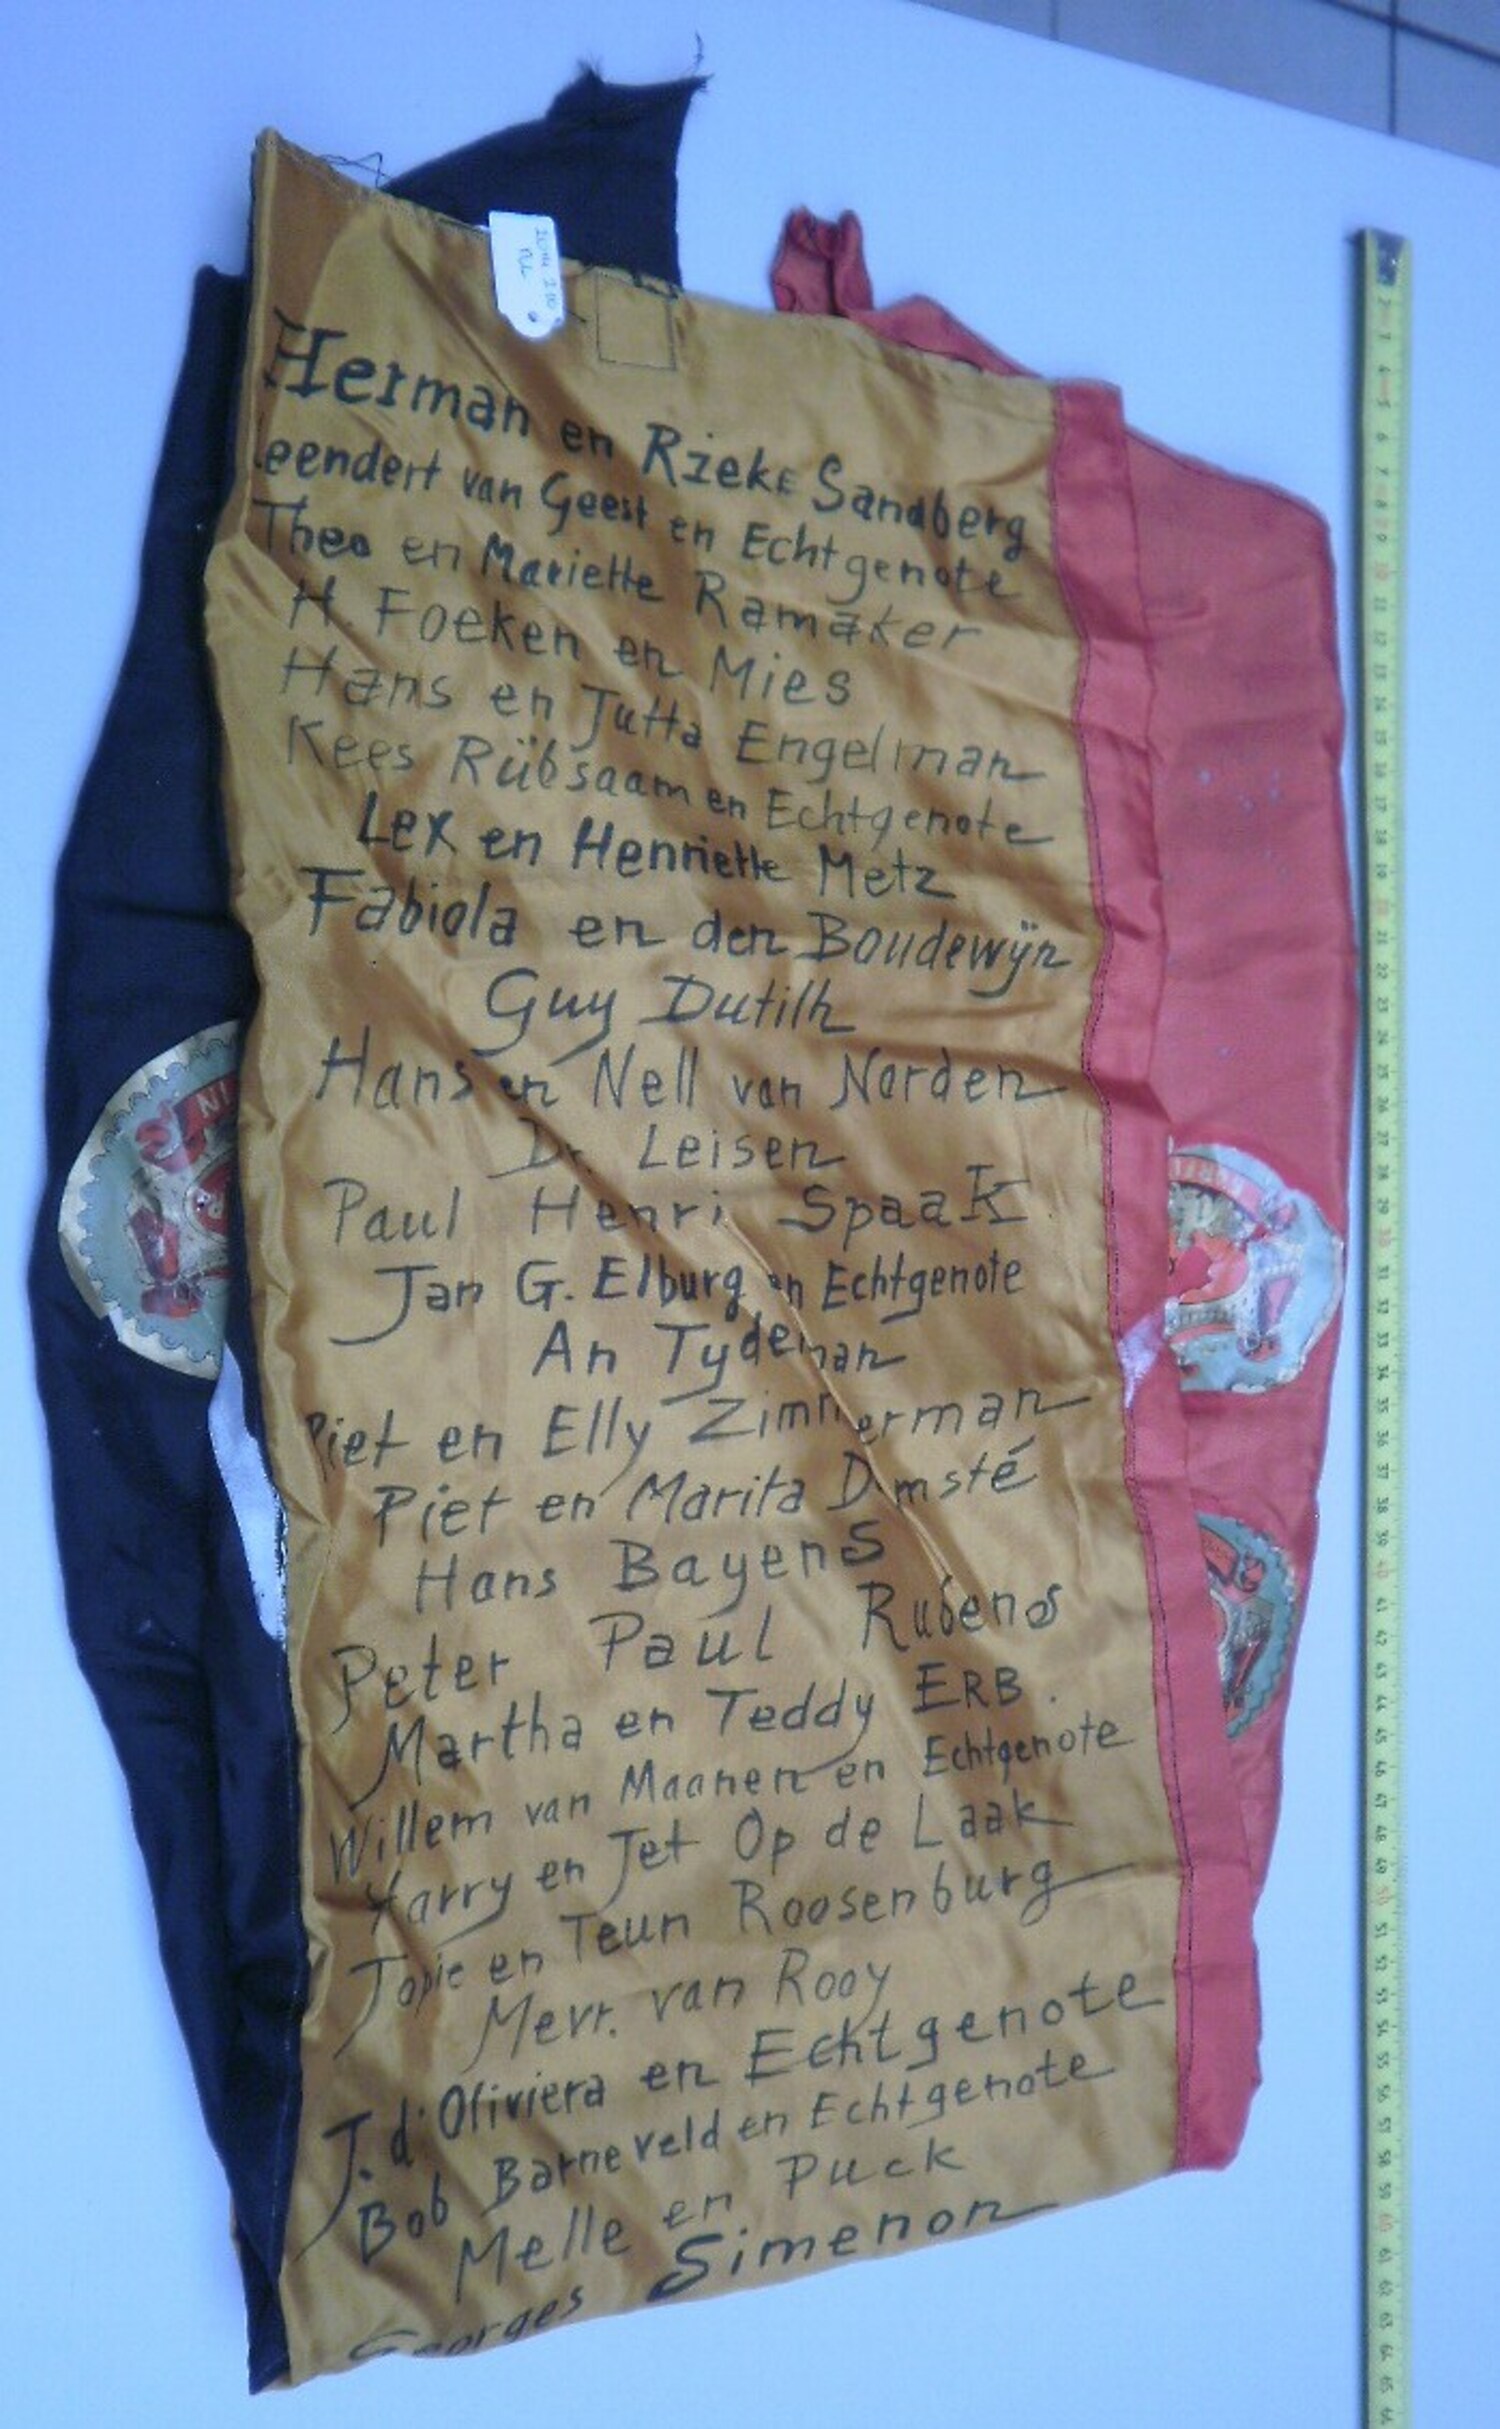 Herman en Rieke Sandberg
Leendert van Geest en Echtgenote
Theo en Mariette Ramaker
H. Foeken en Mies
Hans en Jutta Engelman
Kees Rübsaam en Echtgenote
Lex en Henriette Metz
Fabiola en den Boudewÿn
Guy Dutilh
Hans en Nell van Norden
Dr. Leisen
Paul Henri Spaak
Jan G. Elburg en Echtgenote
An Tydeman
Piet en Elly Zimmerman
Piet en Marita
Hans Bayens
Peter Paul Rubens
Martha en Teddy ERB.
Willem van Maanen en Echtgenote
Harry en Jet Op de Laak
Jopie en Teun Roosenburg
Mevr. van Rooy
J. d'Oliviera en Echtgenote
Bob Barneveld en Echtgenote
Melle en Puck
Georges Simenon